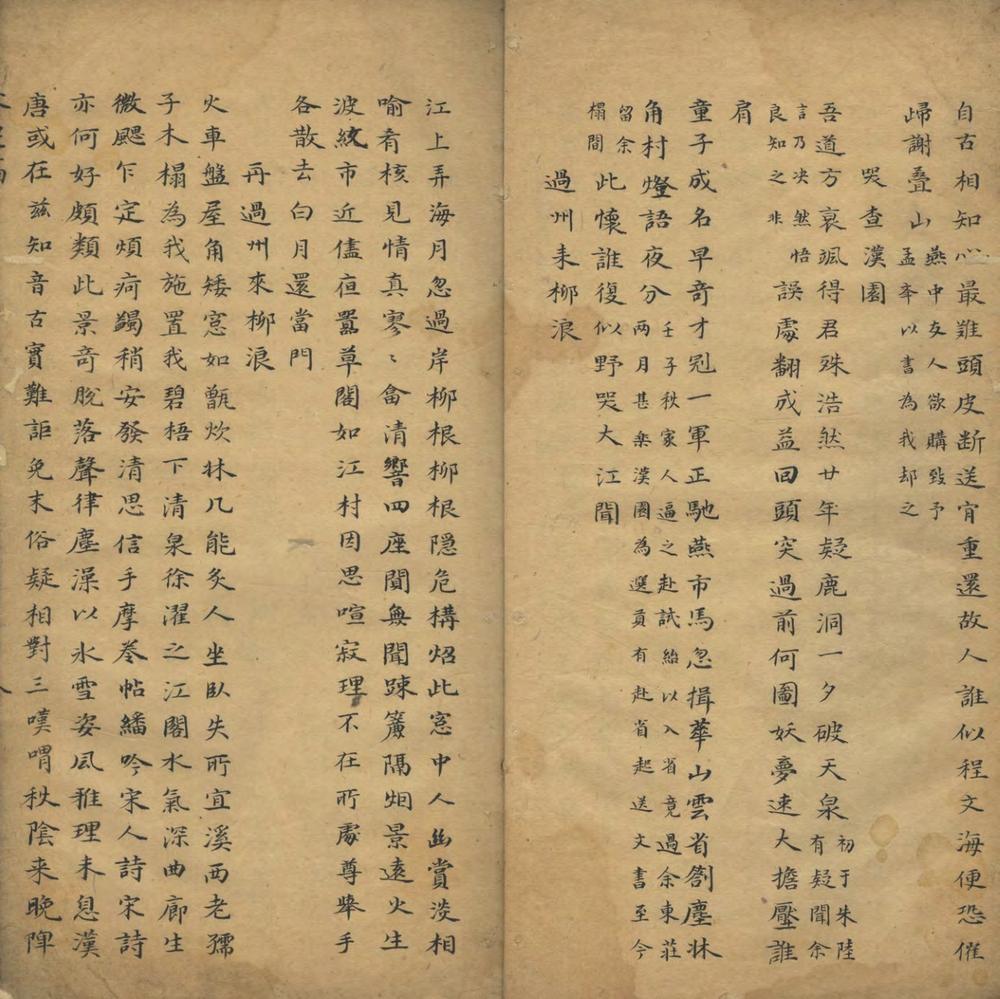 自古相知心最難頭皮断送肯重還故人誰似程文海便恐催
歸謝疊山
燕中友人欲購致予
孟奉以書為我却之
哭查漢園
吾道方衰颯得君殊浩然廿年疑鹿洞一夕破天泉
初于朱陸
有疑聞余
言乃决然悟
良知之非
誤處翻成益回頭突過前何圖妖夢速大擔壓誰
肩
童子成名早奇才冠一軍正馳燕市馬忽揖華山雲省劄塵牀
角村燈語夜分
壬子秋家人逼之赴試紿以入省竟過余東莊
兩月甚楽漢園為選貢有赴省起送文書至今
留余
榻間
此懷誰復似野哭大江聞
過州耒柳浪
江上弄海月忽過岸柳根柳根隱危構炤此窓中人幽賞淡相
喻肴核見情真寥〻畣清響四座闃無聞踈簾隔烟景遠火生
波紋市近儘亱囂草閣如江村因思喧寂理不在所處尊舉手
各散去白月還當門
再過州來柳浪
火車盤屋角矮窓如甑炊牀几能炙人坐臥失所宜溪西老孺
子木榻為我施置我碧梧下清泉徐濯之江閣水氣深曲廊生
微颸乍定煩疴蠲稍安發清思信手摩卷帖繙吟宋人詩宋詩
亦何好頗類此景奇脫落聲律塵澡以氷雪姿風雅理未息漢
唐或在兹知音古實難詎免末俗疑相對三嘆喟秋陰来晚陣